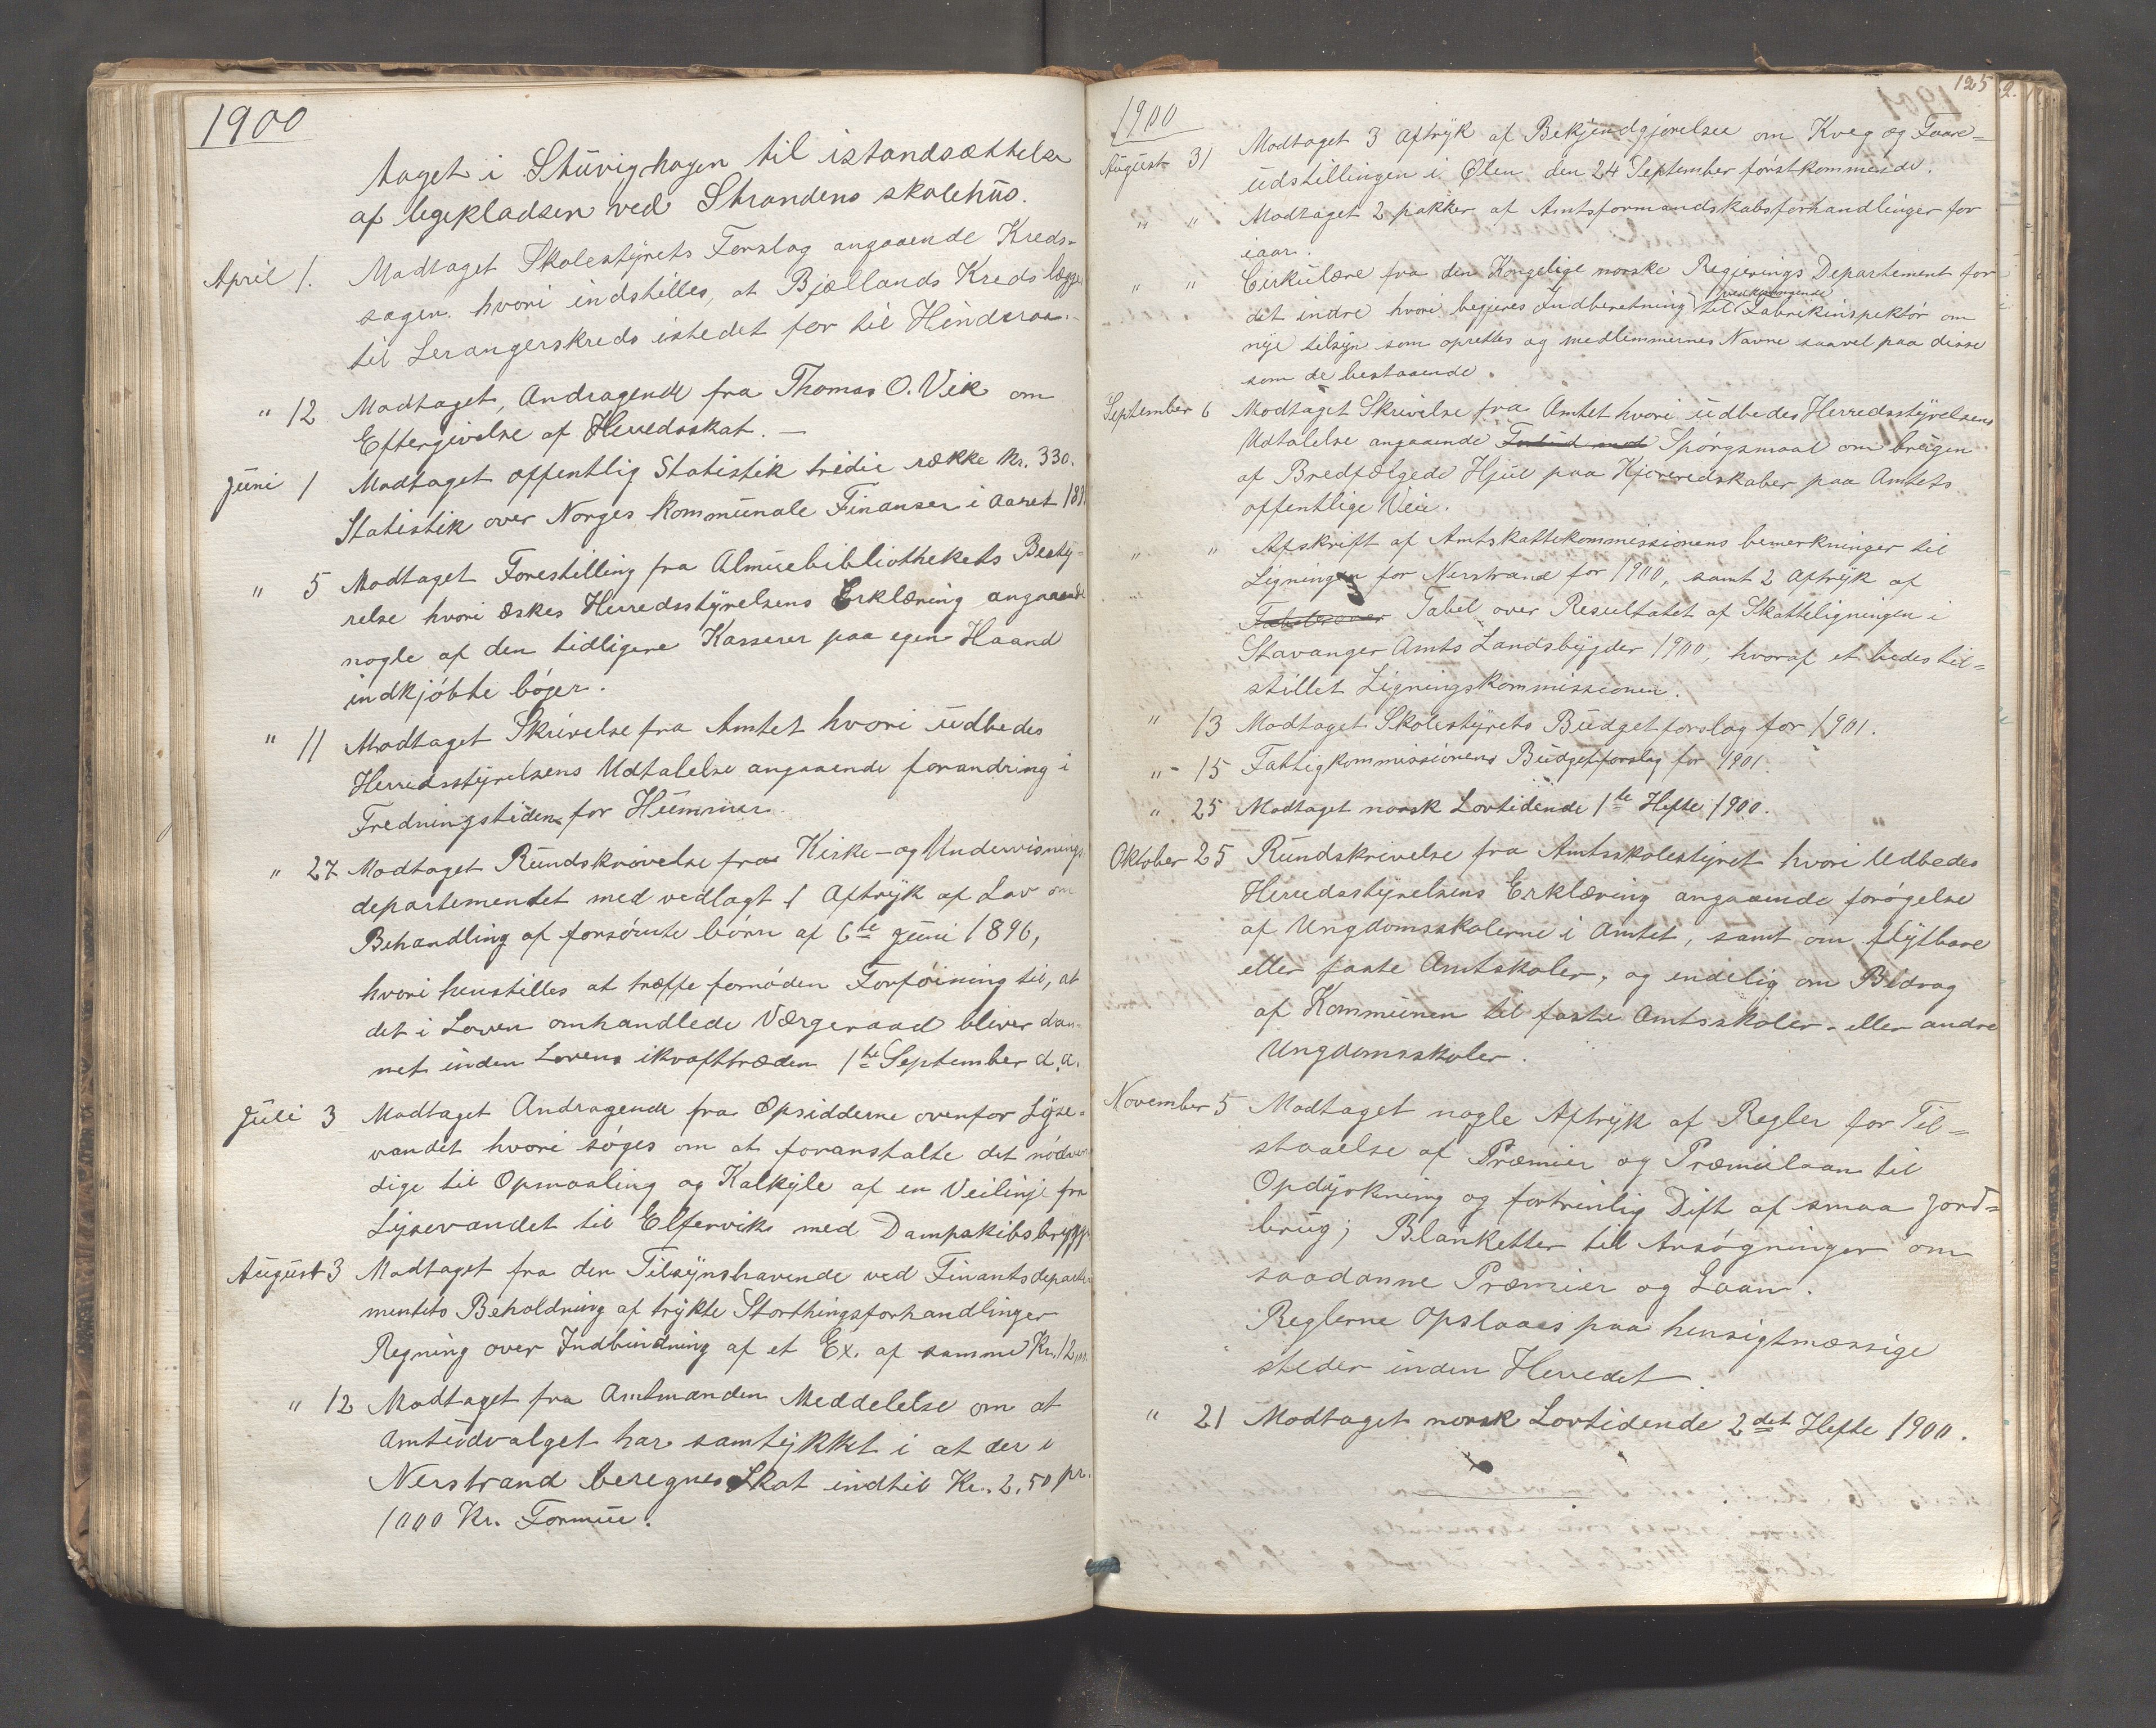 1900
taget i Stuvighagen til istandsættelse
af legepladsen ved Strandens skolehus.
April 1. Modtaget Skolestyrets Forslag angaaende Kreds-
sagen hvori indstilles, at Bjællands Kreds lægges
til Lerangerskreds istedet for til Hinderaa.-
" 12 Modtaget, Andragende fra Thomas O. Vik om
Eftergivelse af Herredsskat. —
Juni 1 Modtaget offentlig Statistik tredie række Nr. 330.
Statistik over Norges Kommunale Finanser i Aaret
" 5 Modtaget Forestilling fra Almuebibliothekets Besty-
relse hvori æskes Herredsstyrelsens Erklæring angaaende
nogle af den tidligere Kasserer paa egen Haand
indkjöbte böger.
" 11 Modtaget Skrivelse fra Amtet hvori udbedes
Herredsstyrelsens Udtalelse angaaende forandring i
Fredningstiden for Hummer
" 27 Modtaget Rundskrivelse fra Kirke- og Undervisnings-
departementet med vedlagt 1 Aftryk af Lov om
Behandling af forsömte börn af 6te Juni 1896,
hvori henstilles at træffe fornöden Forföining til, at
det i Loven omhandlede Værgeraad bliver dan-
net inden Lovens ikrafttræden 1te September d.a.
Juli 3 Modtaget Andragende fra Opsidderne ovenfor Lyse-
vandet hvori söges om at foranstalte det nödven
dige til Opmaaling og Kalkyle af en Veilinje fra
Lysevandet til Elfervik med Dampskibsbrygge
August 3 Modtaget fra den Tilsynshavende ved Finantsdeparte-
mentets Beholdning af trykte Storthingsforhandlinger
Regning over Indbindning af et Ex. af samme Kr. 12,00.
" 12 Modtaget fra Amtmanden Meddelelse om at
Amtsudvalget har samtykket i at der i
Nerstrand beregnes Skat indtil Kr. 2,50 pr.
1000 Kr. Formue.
125
2.
1900
August 31 Modtaget 3 Aftryk af Bekjendgjørelse om Kveg og Faare-
udstillingen i Ølen den 24 September förstkommende.
" " Modtaget 2 pakker af Amtsformandskabsforhandlinger for
iaar.
" " Cirkulære fra den Kongelige norske Regjerings Departement for
vedkommende
det indre hvori begjeres Indberetning til Fabrikinspektör om
nye tilsyn som oprettes og medlemmernes Navne saavel paa disse
som de bestaaende.
September 6 Modtaget Skrivelse fra Amtet hvori udbedes Herredsstyrelsens
Udtalelse angaaende Forbud mod Spörgsmaal om brugen
af Bredfælgede Hjul paa Kjøreredskaber paa Amtets
offentlige Veie.
" " Afskrift af Amtskattekommissionens bemerkninger til
Ligningen for Nerstrand for 1900, samt 2 Aftryk af
Tabel over Resultatet af Skatteligningen i
Stavanger Amts Landsbygder 1900, hvoraf et bedes til-
stillet Ligningskommissionen.
" 13 Modtaget Skolestyrets Budgetforslag for 1901.
" - 15 Fattigkommissionens Budgetforslag for 1901.
" 25 Modtaget norsk Lovtidende 1te Hefte 1900.
Oktober 25 Rundskrivelse fra Amtsskolestyret hvori Udbedes
Herredsstyrelsens Erklæring angaaende forögelse
af Ungdomsskolerne i Amtet, samt om flytbare
eller faste Amtskoler, og endelig om Bidrag
af Kommunen til faste Amtsskoler - eller andre
Ungdomsskoler.
November 5 Modtaget nogle Aftryk af Regler for Til-
staaelse af Præmier og Præmielaan til
Opdyrkning og fortrinlig Dift af smaa Jord-
brug; Blanketter til Ansögninger om
saadanne Præmier og Laan.
Reglerne Opslaaes paa hensigtmæssige
steder inden Herredet.
" 21 Modtaget norsk Lovtidende 2det Hefte 1900.